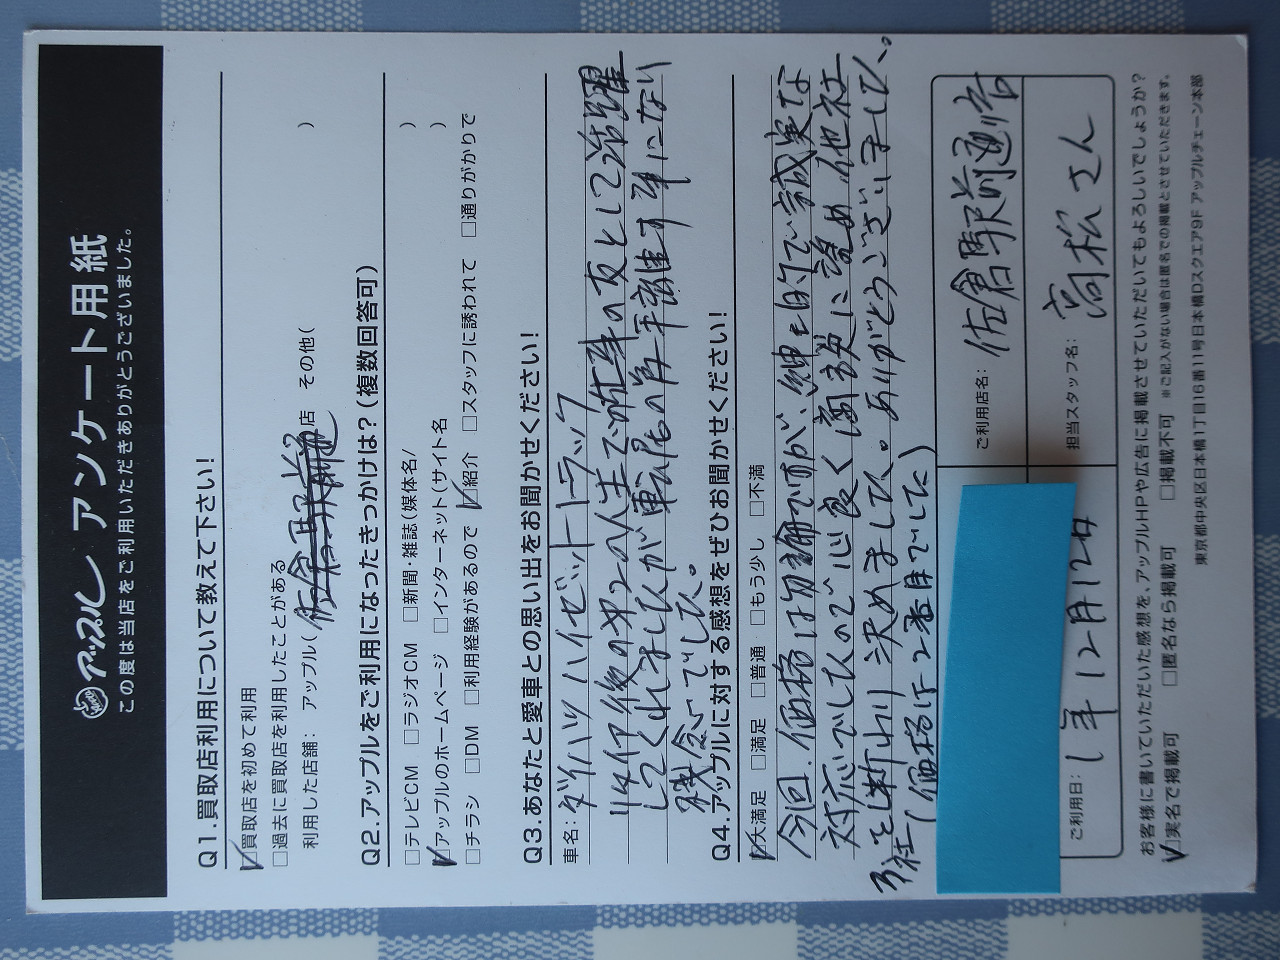 アップル アンケート用紙
この度は当店をご利用いただきありがとうございました。
Q1.買取店利用について教えて下さい!
☑買取店を初めて利用
□過去に買取店を利用したことがある
利用した店舗: アップル( 佐倉駅前通店 その他( )
Q2.アップルをご利用になったきっかけは?(複数回答可)
□テレビCM □ラジオCM □新聞・雑誌(媒体名/ )
☑アップルのホームページ □インターネット(サイト名 )
□チラシ □DM □利用経験があるので ☑紹介 □スタッフに誘われて □通りがかりで
Q3.あなたと愛車との思い出をお聞かせください!
車名: ダイハツハイゼットトラック
して仕事の友として活躍
してくれましたが転居の為手離す事になり
残念でした。
Q4.アップルに対する感想をぜひお聞かせください!
☑大満足 □満足 □普通 □もう少し □不満
今回、価格は勿論ですが、紳士的で誠実な
対応でしたので心良く商談に望め他社
を断わり決めました。ありがとうございました。
(価格は2番目でした)
ご利用店名: 佐倉駅前通店
ご利用日: 1年12月12日
担当スタッフ名: 高松さん
お客様に書いていただいた感想を、アップルHPや広告に掲載させていただいてもよろしいでしょうか?
☑実名で掲載可 □匿名なら掲載可 □掲載不可 ※ご記入がない場合は匿名での掲載とさせていただきます。
東京都中央区日本橋1丁目16番11号日本橋Dスクエア9F アップルチェーン本部